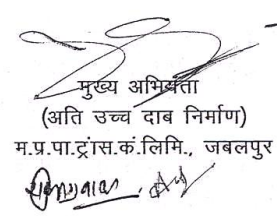 मुख्य अभियंता
(अति उच्च दाब निर्माण)
म.प्र.पा.ट्रांस.कं.लिमि., जबलपुर